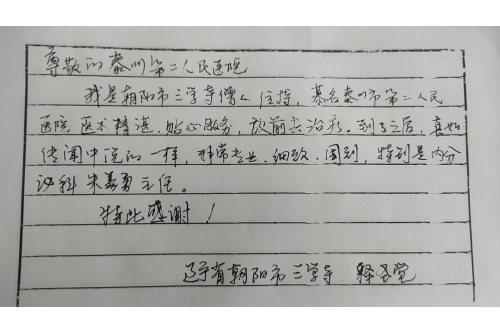 尊敬的泰州第二人民医院
我是朝阳市三学寺僧人住持，慕名泰州市第二人民
医院医术精湛、贴心服务，放前去治疗。到了之后，真如
传闻中说的一样，非常专业、细致、周到，特别是内分
泌科朱美勇主任。
特此感谢！
辽宁省朝阳市三学寺 释圣觉